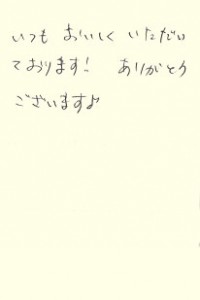 いつも おいしく いただい
ております! ありがとう
ございます♪